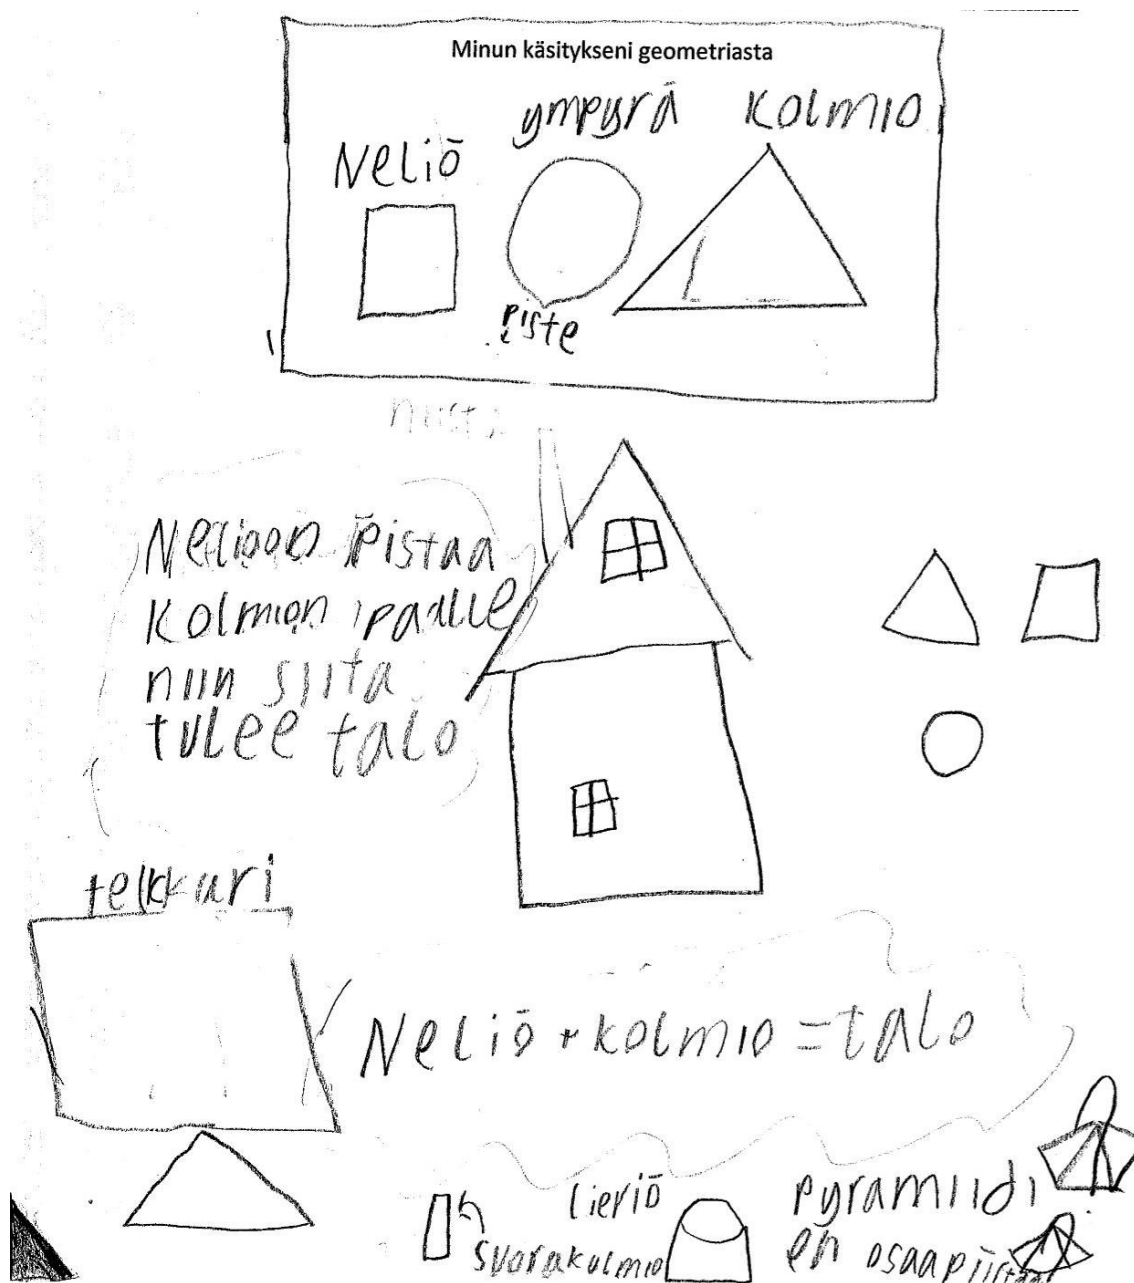 Minun käsitykseni geometriasta
Neliö ympyrä Kolmio
piste
Neliöön pistää
Kolmion päälle
niin siitä
tulee talo
telkkari
Neliö + kolmio = talo
suorakulmio
lieriö
pyramiidi
en osaa piirtää